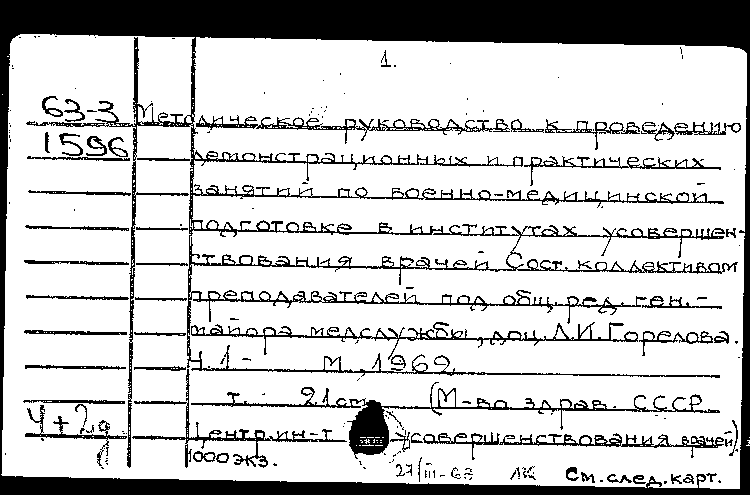 1.
63-3 Методическое руководство к проведению
1596 демонстрационных и практических
занятий по военно-медицинской
подготовке в институтах усовершен-
ствования врачей Сост. коллективом
преподавателей под общ. ред. ген.-
майора медслужбы, доц. Л.И. Горелова.
Ч. 1- М., 1962
т. 21см (М-во здрав. СССР
Ч+2д Центр. ин-т усовершенствования врачей).
1000 экз.
27/III-63 ЛК См. след. карт.